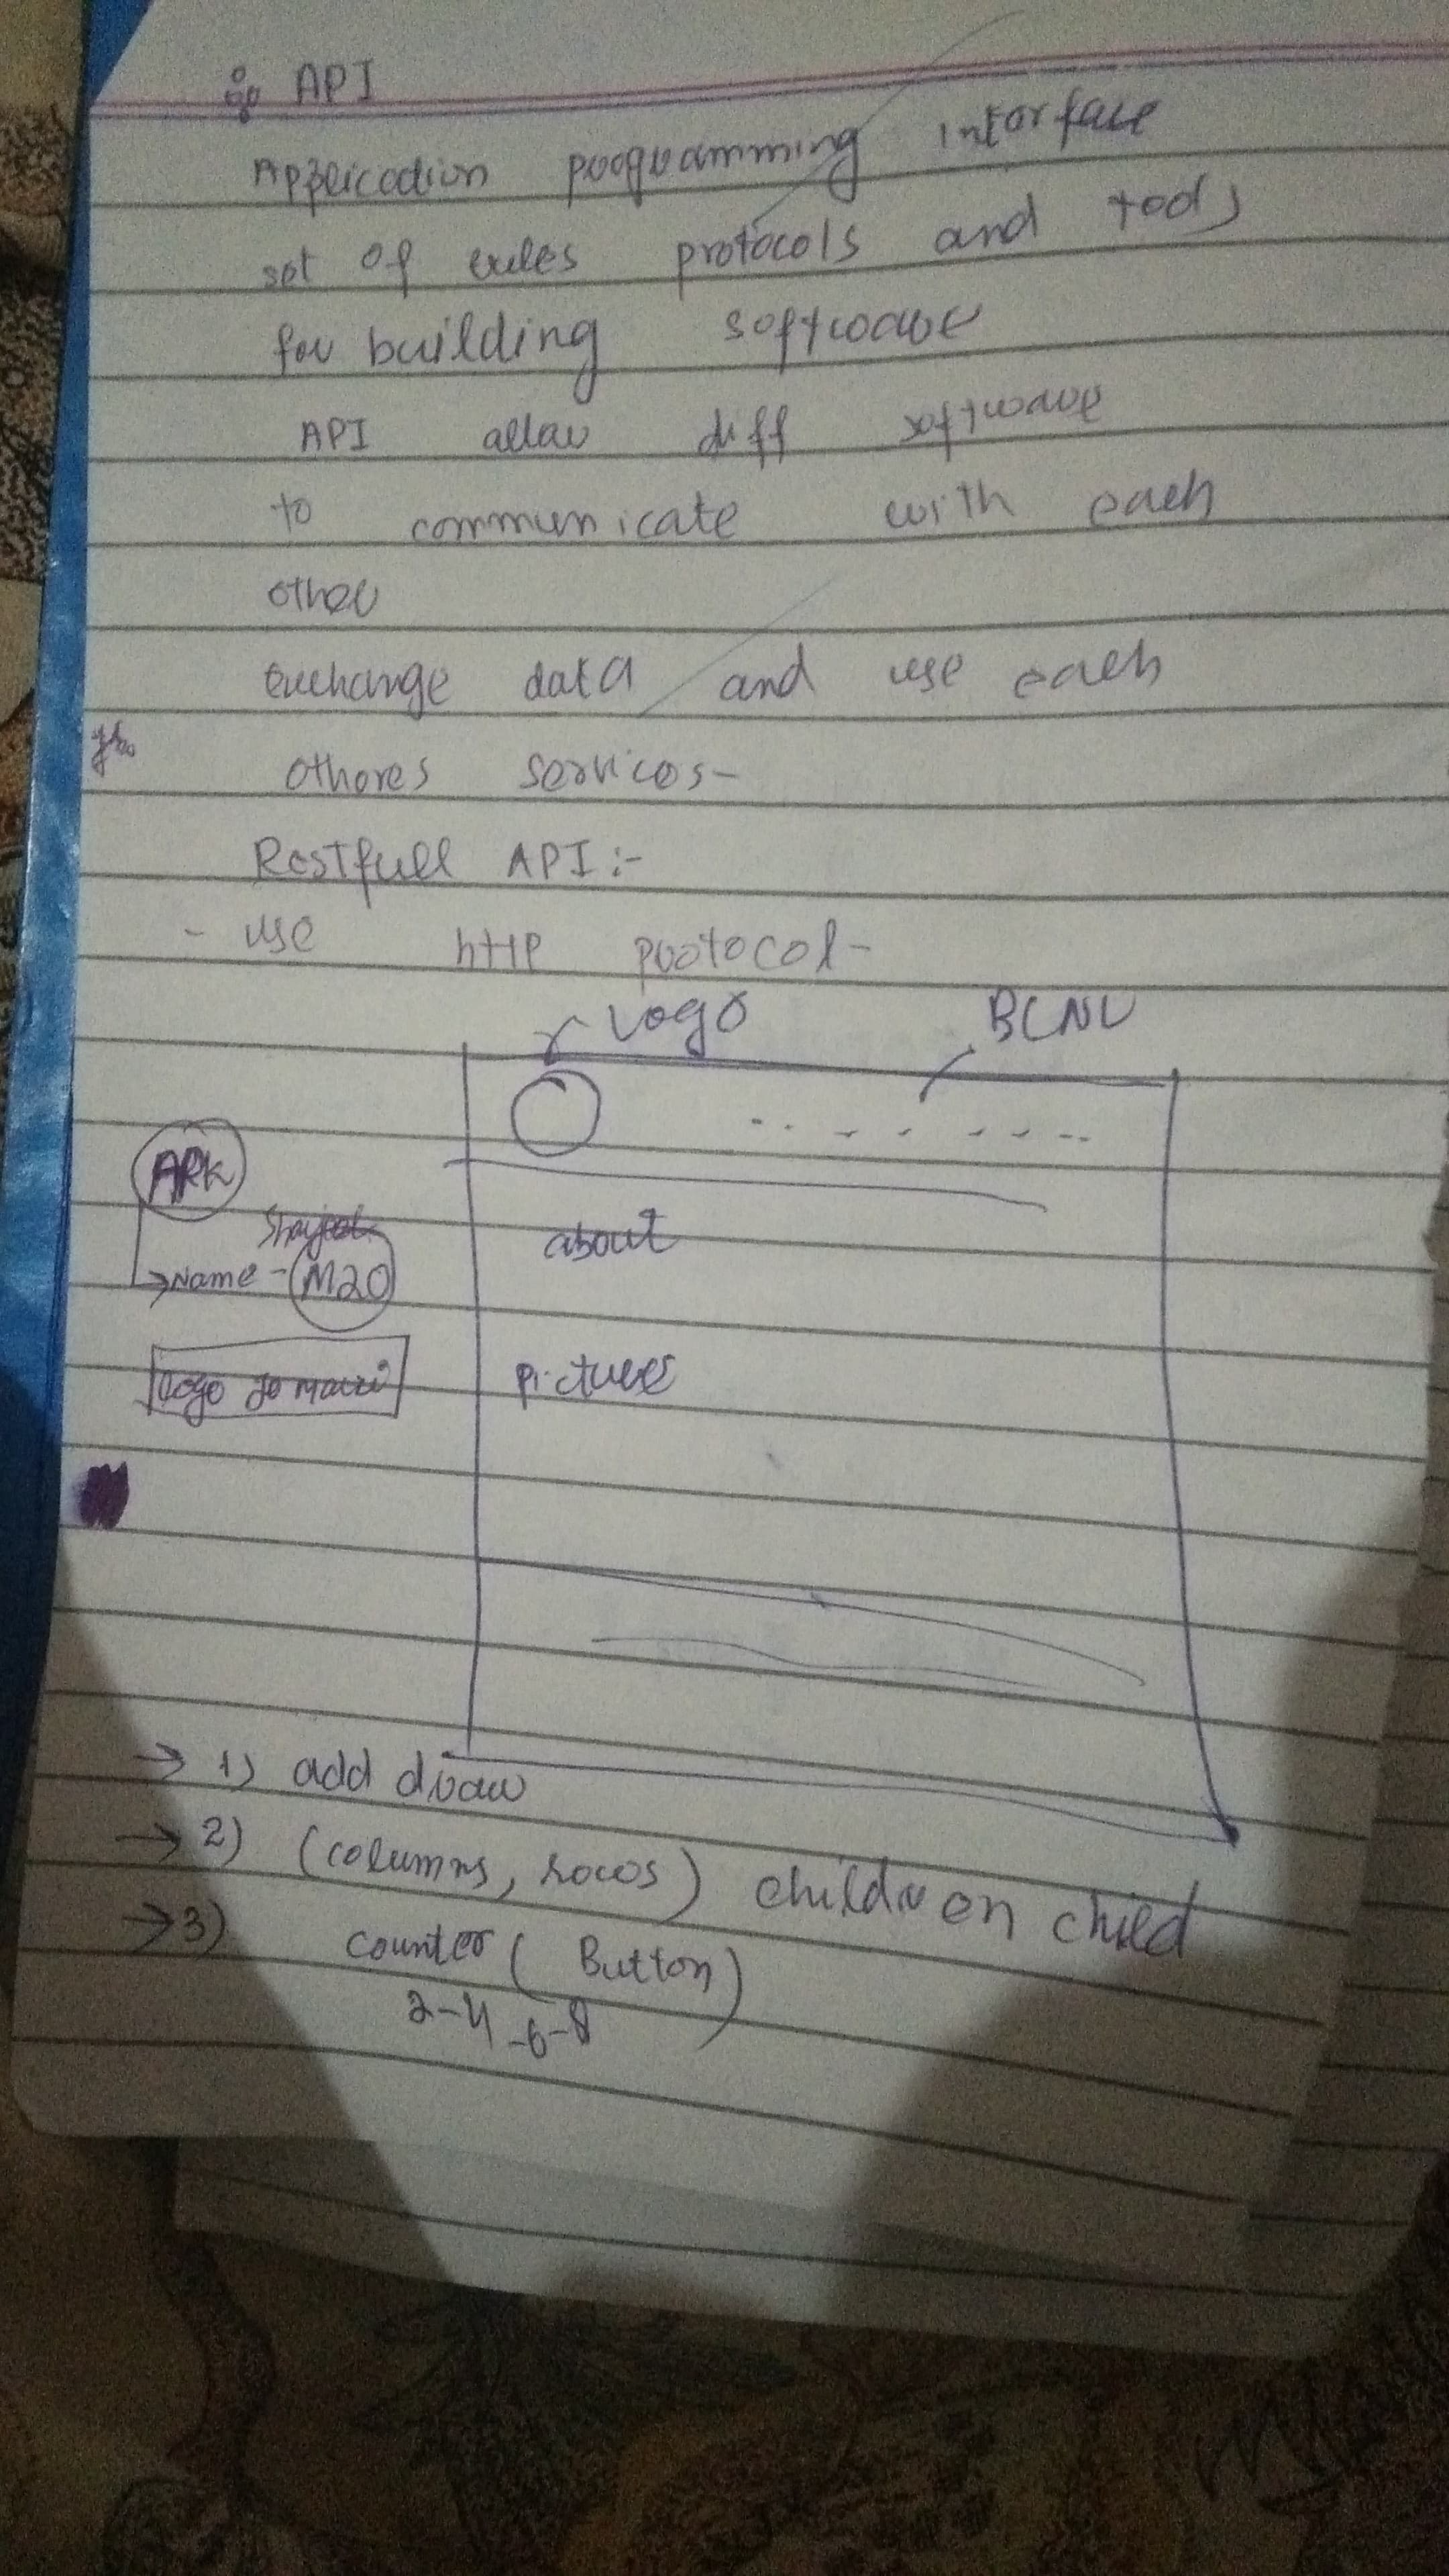 API
Applicadion programming interface
set of rules protocols and tools
for building software
API allow diff software
to communicate with each
other
exchange data and use each
othores services-
Restfull API :-
- use http protocol-
Logo
ARK
Name - M20
about
pictures
→ 1) add draw
→ 2) (columns, rows) children child
→ 3) counter ( Button )
2-4-6-8